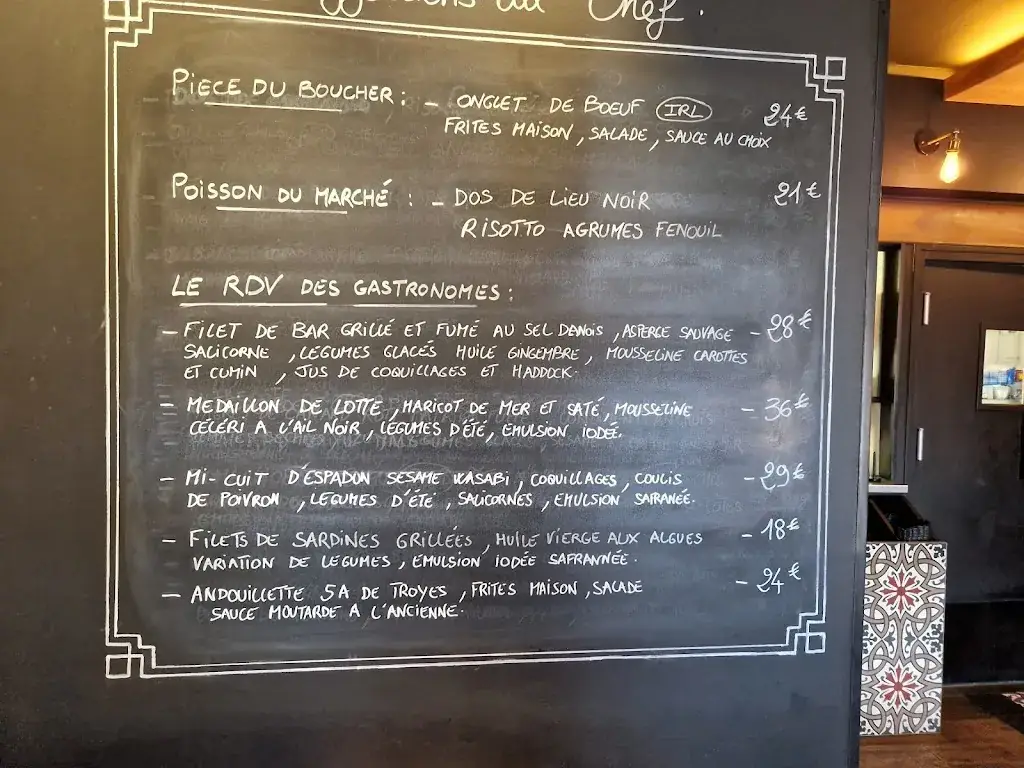 du Chef.
PIECE DU BOUCHER : - ONGLET DE BŒUF (IRL) 24€
FRITES MAISON, SALADE, SAUCE AU CHOIX
POISSON DU MARCHÉ : - DOS DE LIEU NOIR 21€
RISOTTO AGRUMES FENOUIL
LE RDV DES GASTRONOMES :
- FILET DE BAR GRILLÉ ET FUMÉ AU SEL DANOIS, ASPERGE SAUVAGE - 28€
SALICORNE, LÉGUMES GLACÉS HUILE GINGEMBRE, MOUSSELINE CAROTTES
ET CUMIN, JUS DE COQUILLAGES ET HADDOCK.
- MEDAILLON DE LOTTE, HARICOT DE MER ET SATÉ, MOUSSELINE - 36€
CELERI A L'AIL NOIR, LÉGUMES D'ÉTÉ, EMULSION IODÉE.
- MI-CUIT D'ESPADON SESAME WASABI, COQUILLAGES, COULIS - 29€
DE POIVRON, LEGUMES D'ÉTÉ, SALICORNES, EMULSION SAFRANÉE.
- FILETS DE SARDINES GRILLÉES, HUILE VIERGE AUX ALGUES - 18€
VARIATION DE LEGUMES, EMULSION IODÉE SAFRANNÉE.
- ANDOUILLETTE 5A DE TROYES, FRITES MAISON, SALADE - 24€
SAUCE MOUTARDE A L'ANCIENNE.